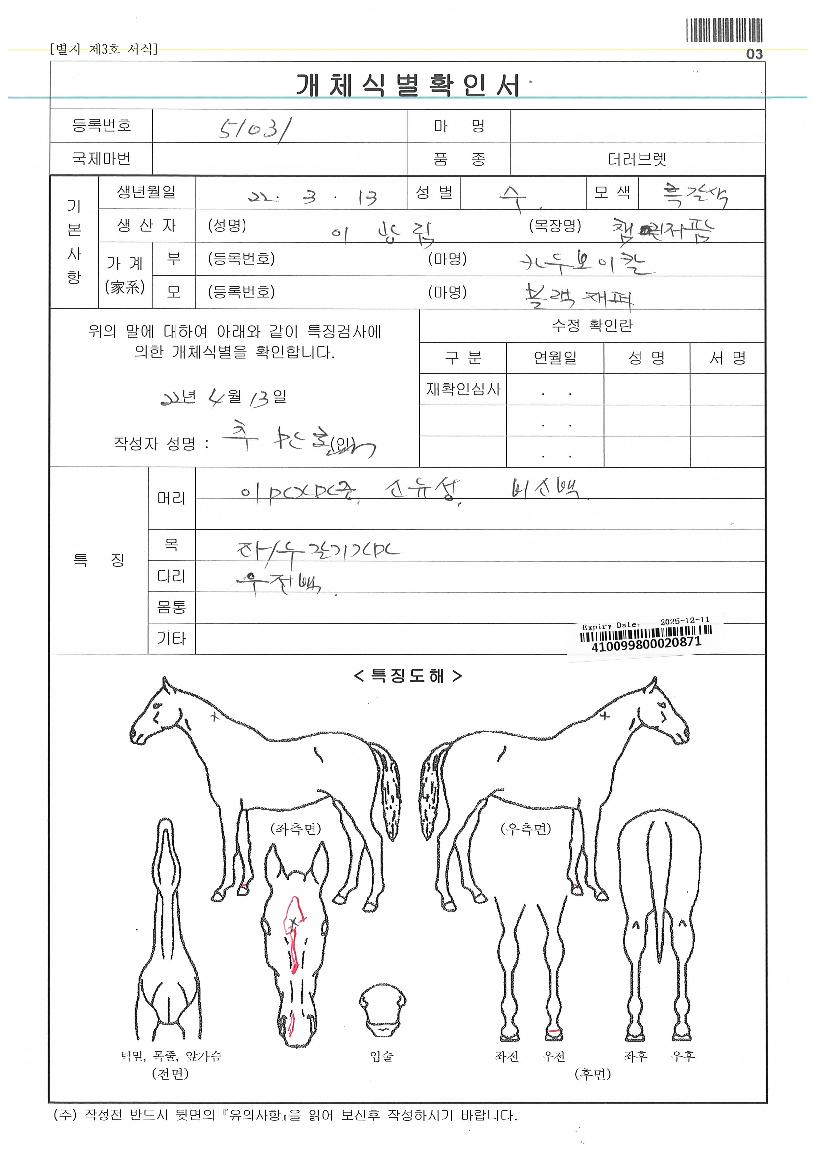 [별지 제3호 서식]
03
개체식별확인서
등록번호 51031 마 명
국제마번 품 종 더러브렛
기본사항
생년월일 22. 3. 13 성 별 수 모 색 흑갈색
생 산 자 (성명) 이 (목장명) 챔피언자팜
가 계 (家系) 부 (등록번호) (마명) 카우보이칼
모 (등록번호) (마명) 블랙재퍼
위의 말에 대하여 아래와 같이 특징검사에
의한 개체식별을 확인합니다.
22년 4월 13일
작성자 성명 : 추 (인)
수정 확인란
구 분 연월일 성 명 서 명
재확인심사 . .
. .
. .
특 징
머리 비소백
목 좌/우
다리 우전백
몸통
기타
Expiry Date: 2025-12-11
410099800020871
< 특징도해 >
(좌측면) (우측면)
턱밑, 목줄, 앞가슴 입술 좌전 우전 좌후 우후
(전면) (후면)
(주) 작성전 반드시 뒷면의 『유의사항』을 읽어 보신후 작성하시기 바랍니다.